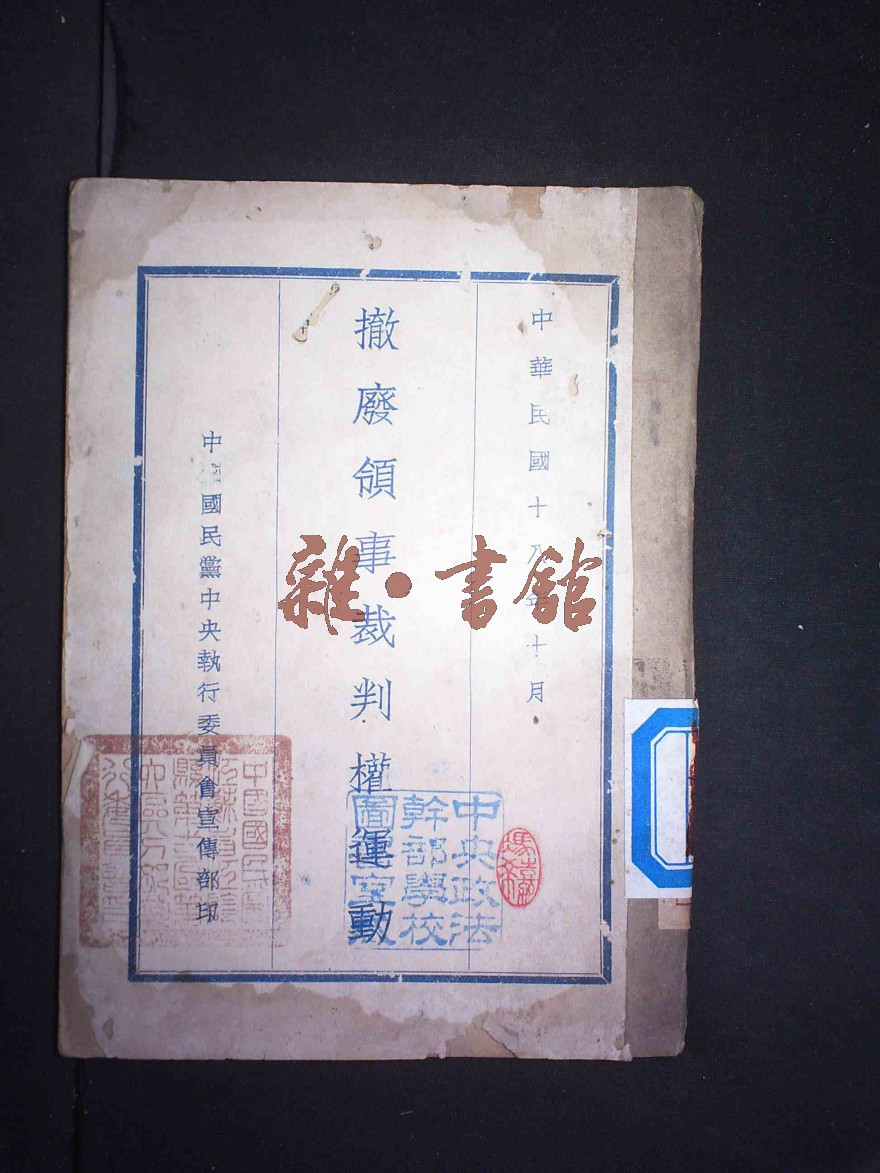 中華民國十八年十月
撤廢領事裁判權運動
中國國民黨中央執行委員會宣傳部印
雜·書館
中央政法
幹部學校
圖書室